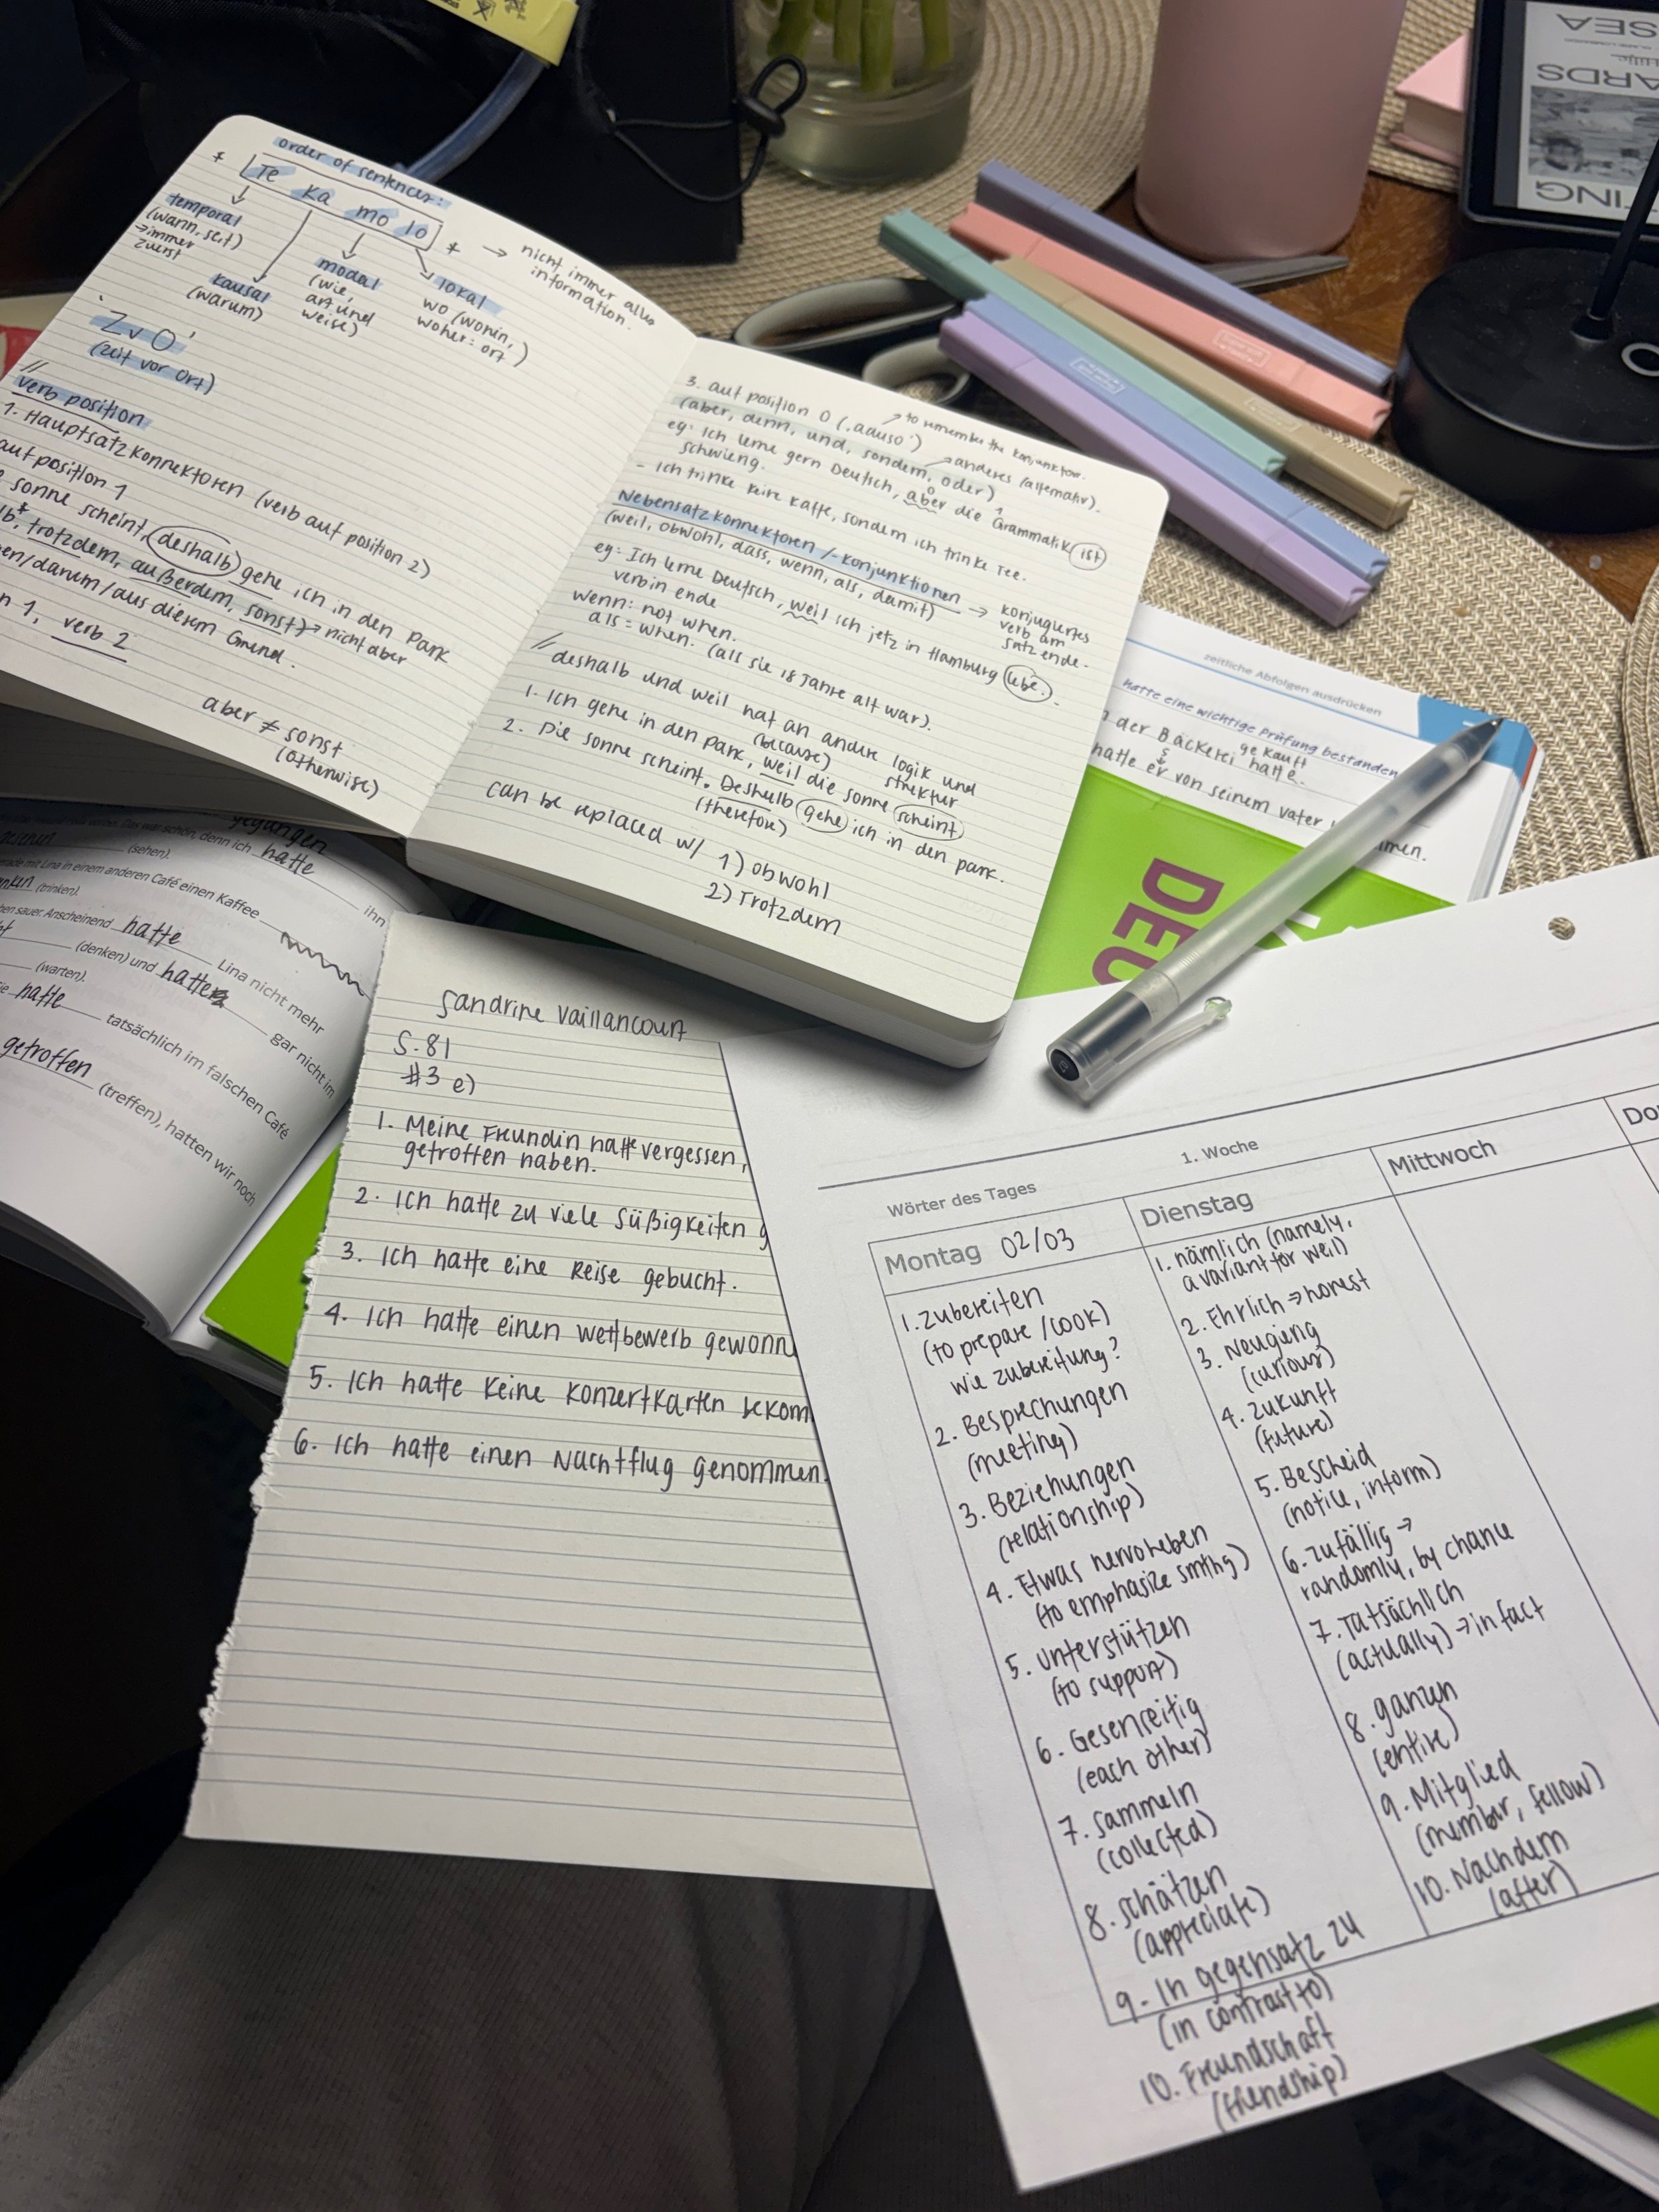 order of sentences:
* Te Ka mo lo *
→ nicht immer alles
information.
temporal
(wann, seit)
→ immer
zuerst
kausal
(warum)
modal
(wie,
art und
weise)
lokal
wo (wohin,
woher: ort)
'ZvO'
(zeit vor Ort)
// verb position
1. Hauptsatzkonnektoren (verb auf position 2)
auf position 1
sonne scheint, deshalb gehe ich in den Park
trotzdem, außerdem, sonst) → nicht aber
/darum/aus diesem Grund.
1, verb 2
aber ≠ sonst
(otherwise)
3. auf position 0 (.aduso') → to remember the konjunktion.
(aber, denn, und, sondern, oder) → anderes (alternativ).
eg: Ich lerne gern Deutsch, aber die Grammatik ist
0 1
schwierig.
- Ich trinke keine kaffe, sondern ich trinke Tee.
Nebensatzkonnektoren /-konjunktionen
(weil, obwohl, dass, wenn, als, damit) → konjugiertes
verb am
satzende.
eg: Ich lerne Deutsch, weil ich jetz in Hamburg lebe.
verb in ende
wenn: not when.
als = when. (als sie 18 Jahre alt war).
// deshalb und weil hat an andre logik und
struktur
(because)
1. Ich gehe in den park, weil die sonne scheint
2. Die sonne scheint. Deshalb gehe ich in den park.
(therefore)
can be replaced w/ 1) obwohl
2) Trotzdem
zeitliche Abfolgen ausdrücken
hatte eine wichtige Prüfung bestanden
der Bäckerei gekauft
hatte.
hatte er von seinem vater
DEU
gegangen
(sehen).
hatte
ihn
mit Lina in einem anderen Café einen Kaffee
(trinken).
sauer. Anscheinend hatte Lina nicht mehr
(denken) und hatte gar nicht im
(warten).
hatte tatsächlich im falschen Café
getroffen (treffen), hatten wir noch
Sandrine Vaillancourt
S. 81
#3 e)
1. Meine Freundin hatte vergessen,
getroffen haben.
2. Ich hatte zu viele süßigkeiten g
3. Ich hatte eine Reise gebucht.
4. Ich hatte einen wettbewerb gewonn
5. Ich hatte keine Konzertkarten bekom
6. Ich hatte einen Nachtflug genommen.
1. Woche
Wörter des Tages
Montag 02/03
Dienstag
Mittwoch
Do
1. zubereiten
(to prepare /cook)
wie zubereitung?
2. Besprechungen
(meeting)
3. Beziehungen
(relationship)
4. Etwas hervorheben
(to emphasize smthg)
5. unterstützen
(to support)
6. Gesenseitig
(each other)
7. sammeln
(collected)
8. schätzen
(appreciate)
9. In gegensatz zu
(in contrast to)
10. Freundschaft
(friendship)
1. nämlich (namely,
a variant for weil)
2. Ehrlich → honest
3. Neugierig
(curious)
4. Zukunft
(future)
5. Bescheid
(notice, inform)
6. zufällig →
randomly, by chance
7. Tatsächlich
(actually) → in fact
8. ganzen
(entire)
9. Mitglied
(member, fellow)
10. Nachdem
(after)